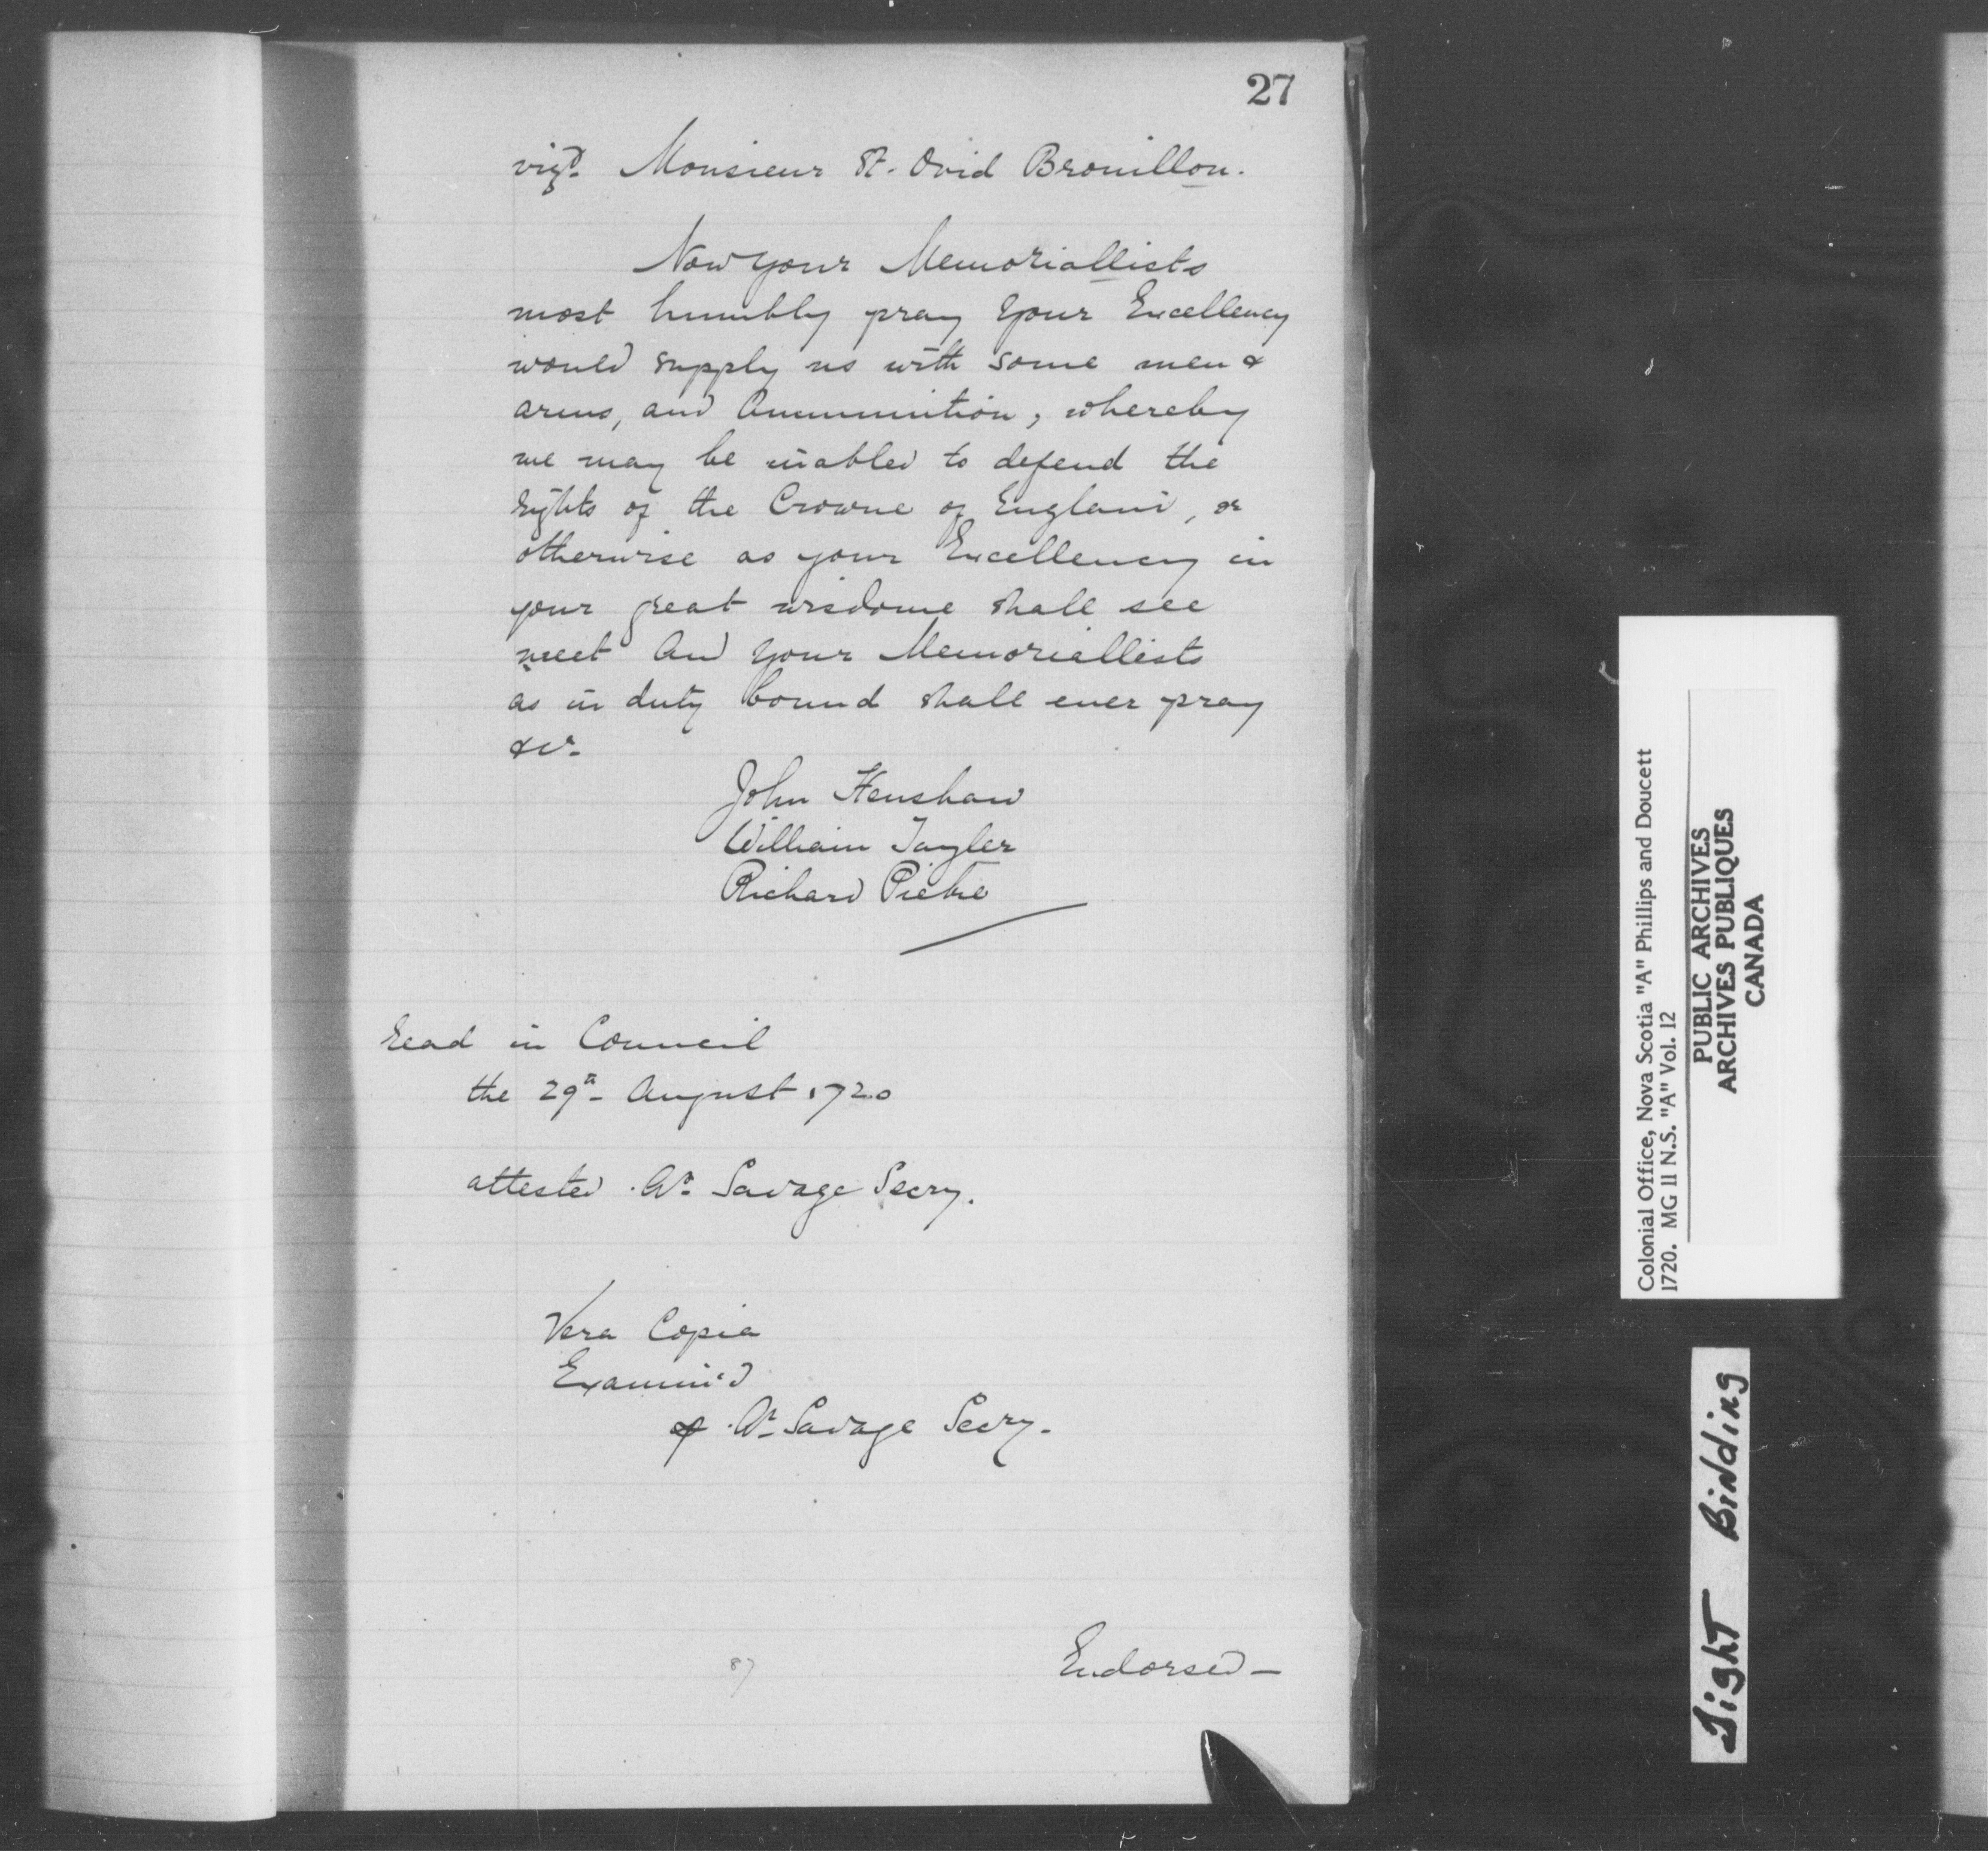 27
vizt. Monsieur St. Ovid Brouillon.
Now your Memoriallists
most humbly pray your Excellency
would supply us with some men &
arms, and Ammunition, whereby
we may be inabled to defend the
rights of the Crowne of England, or
otherwise as your Excellency in
your great wisdome shall see
meet And your Memoriallists
as in duty bound shall ever pray
&c.
John Henshaw
William Tayler
Richard
read in Council
the 29th August 1720
attested Ar. Savage Secry.
Vera Copia
Examin'd
Ar. Savage Secry.
87
Endorsed —
Colonial Office, Nova Scotia "A" Phillips and Doucett
1720. MG 11 N.S. "A" Vol. 12
PUBLIC ARCHIVES
ARCHIVES PUBLIQUES
CANADA
Tight Binding